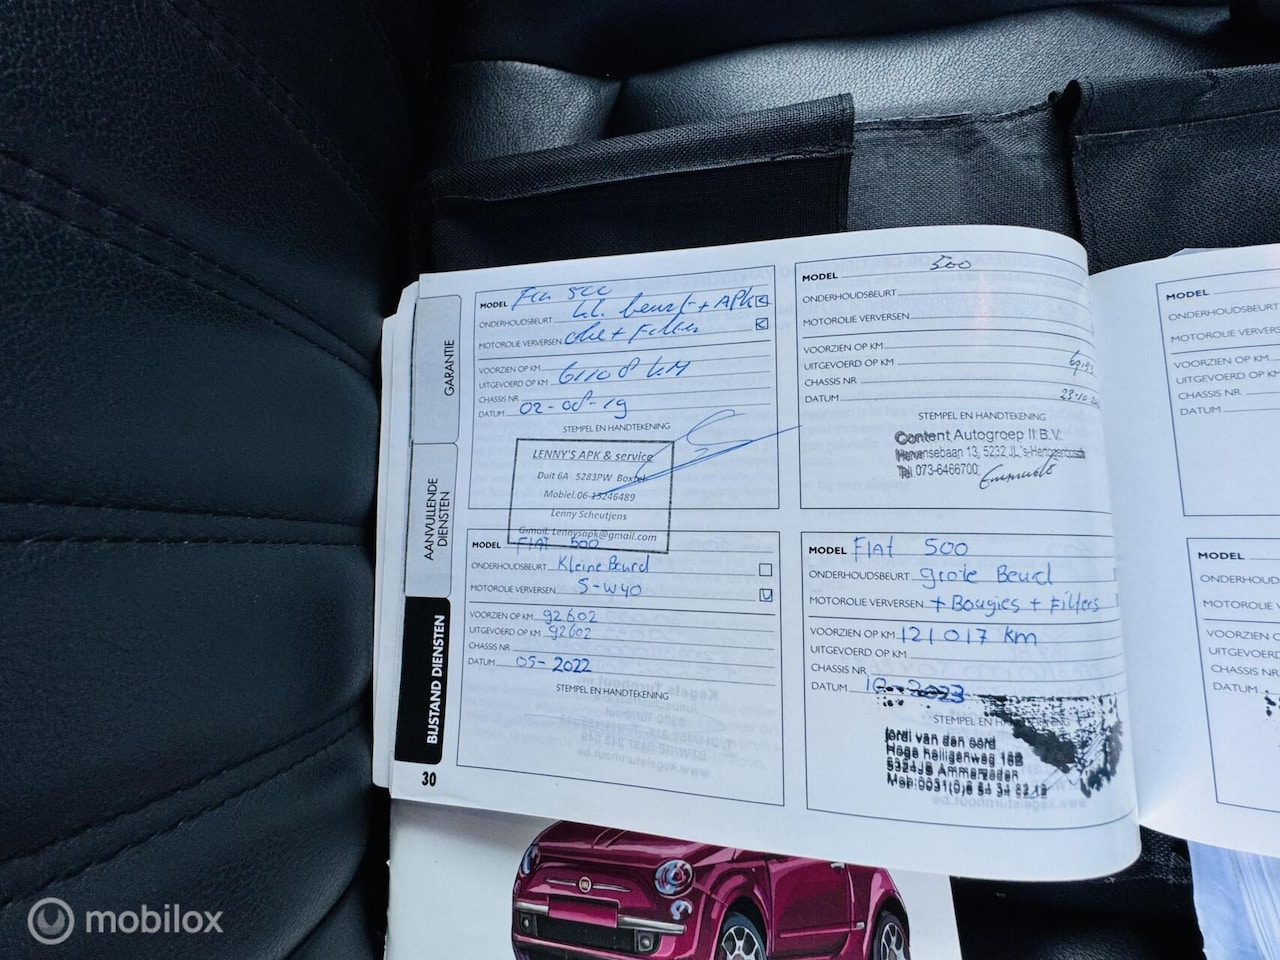 GARANTIE
AANVULLENDE
DIENSTEN
BIJSTAND DIENSTEN
30
MODEL Fiat 500
ONDERHOUDSBEURT kl. beurt + APK
MOTOROLIE VERVERSEN olie + Filter
VOORZIEN OP KM
UITGEVOERD OP KM 61108 KM
CHASSIS NR
DATUM 02-08-19
STEMPEL EN HANDTEKENING
LENNY'S APK & service
Duit 6A 5283PW Boxtel
Mobiel:06-15246489
Lenny Scheutjens
Gmail. Lennysapk@gmail.com
MODEL 500
ONDERHOUDSBEURT
MOTOROLIE VERVERSEN
VOORZIEN OP KM
UITGEVOERD OP KM
CHASSIS NR
DATUM 23-10-
STEMPEL EN HANDTEKENING
Content Autogroep II B.V.
Hervensebaan 13, 5232 JL 's-Hertogenbosch
Tel. 073-6466700
MODEL FIAT 500
ONDERHOUDSBEURT Kleine Beurd
MOTOROLIE VERVERSEN 5-W40
VOORZIEN OP KM 92602
UITGEVOERD OP KM 92602
CHASSIS NR
DATUM 05-2022
STEMPEL EN HANDTEKENING
MODEL FIAT 500
ONDERHOUDSBEURT grote Beurd
MOTOROLIE VERVERSEN + Bougies + Filters
VOORZIEN OP KM 121017 km
UITGEVOERD OP KM
CHASSIS NR
DATUM 10-2023
STEMPEL EN
jordi van den oord
Hoge heiligenweg 16B
5324JB Ammerzoden
Mob:0031(0)6 54 34 82 12
MODEL
ONDERHOUDSBEURT
MOTOROLIE VERVERS
VOORZIEN OP KM
UITGEVOERD OP KM
CHASSIS NR
DATUM
MODEL
ONDERHOUDSB
MOTOROLIE VE
VOORZIEN OP K
UITGEVOERD O
CHASSIS NR
DATUM
mobilox